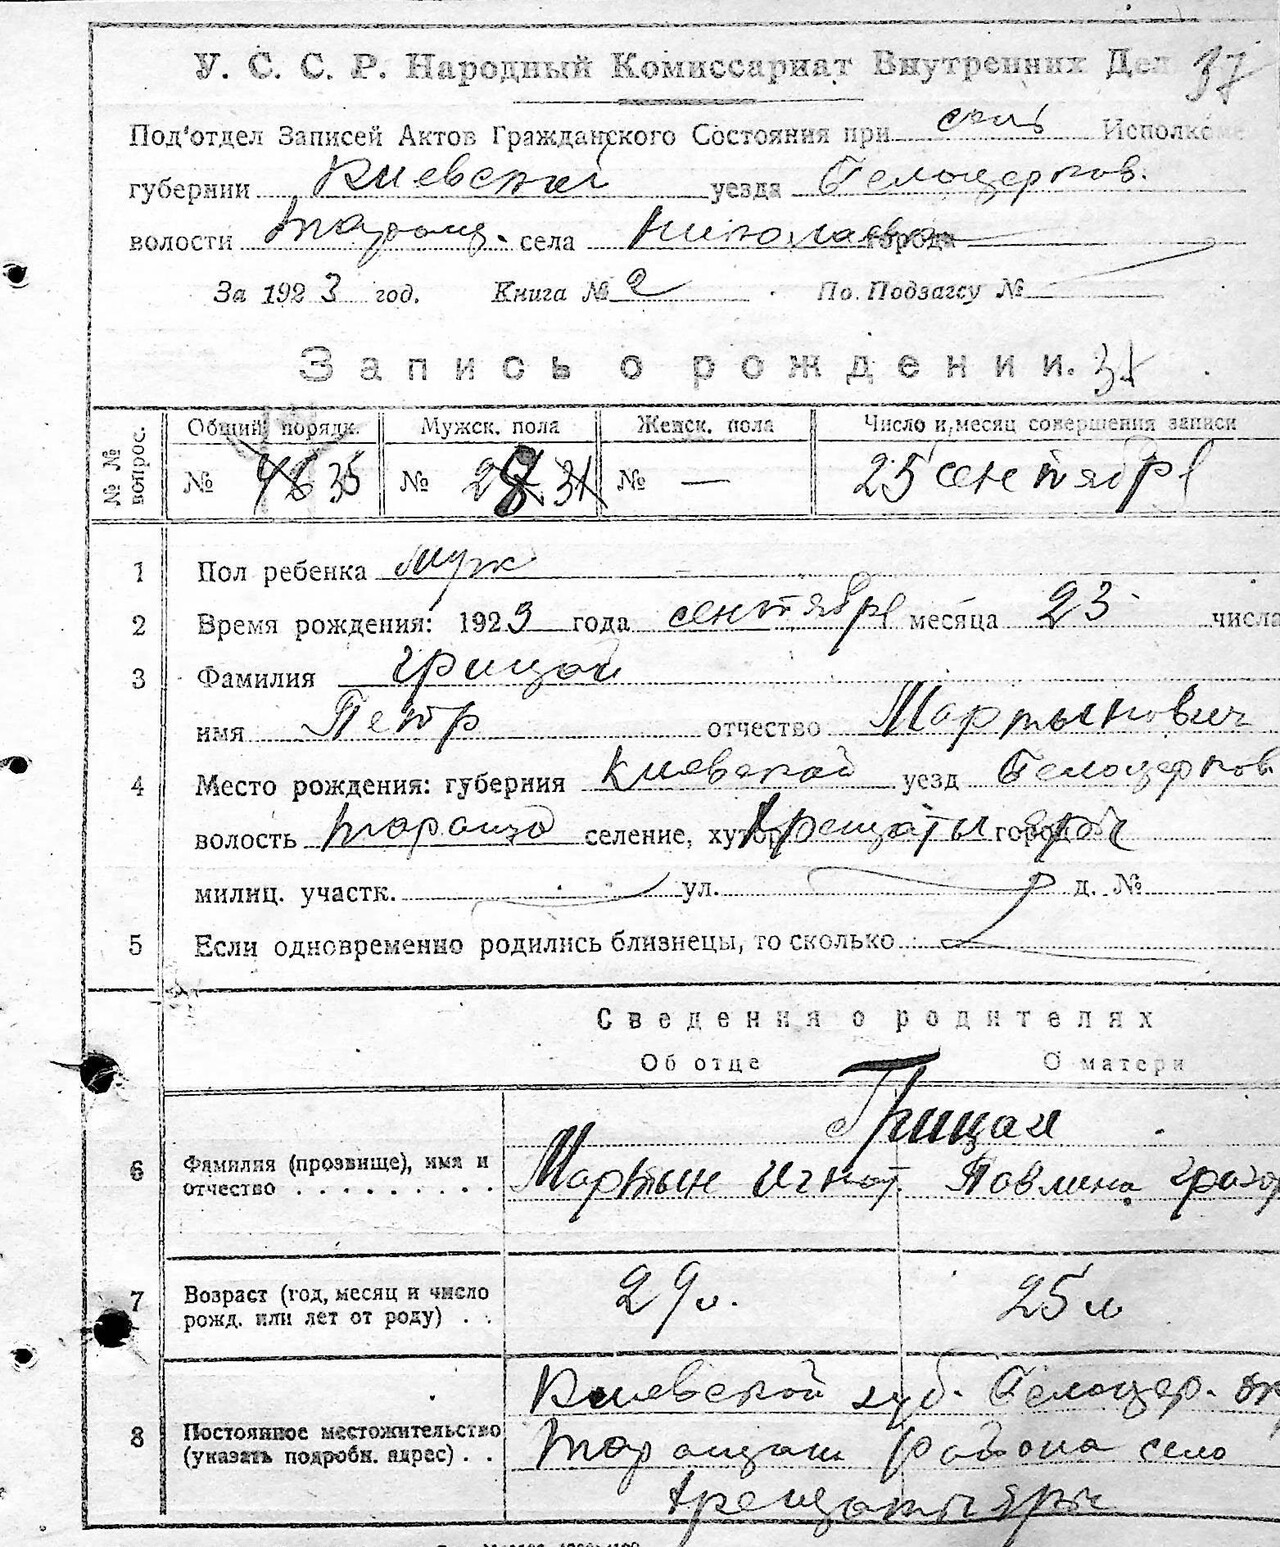 У. С. С. Р. Народный Комиссариат Внутренних Дел 37
Под'отдел Записей Актов Гражданского Состояния при сель Исполкоме
губернии Киевской уезда Белоцерков.
волости Таращ. села Николаевка города
За 1923 год. Книга № 2 По. Подзагсу №
Запись о рождении.
№№ вопрос. Общий порядк. Мужск. пола Женск. пола Число и месяц совершения записи
№ 46 35 № 31 № — 25 сентября
1 Пол ребенка муж
2 Время рождения: 1923 года сентября месяца 23 числа
3 Фамилия Грицай
имя Петр отчество Мартынович
4 Место рождения: губерния Киевской уезд Белоцерков.
волость Тараща селение, хутор Хрещаты яры город
милиц. участк. ул. д. №
5 Если одновременно родились близнецы, то сколько
Сведения о родителях
Об отце О матери
Грицай
6 Фамилия (прозвище), имя и отчество . . . . . . . . . Мартын Игнат. Павлина Григор
7 Возраст (год, месяц и число рожд. или лет от роду) . . 29 л. 25 л
Киевской губ. Белоцер. ок
8 Постоянное местожительство (указать подробн. адрес) . . Таращан района село
Хрещаты яры